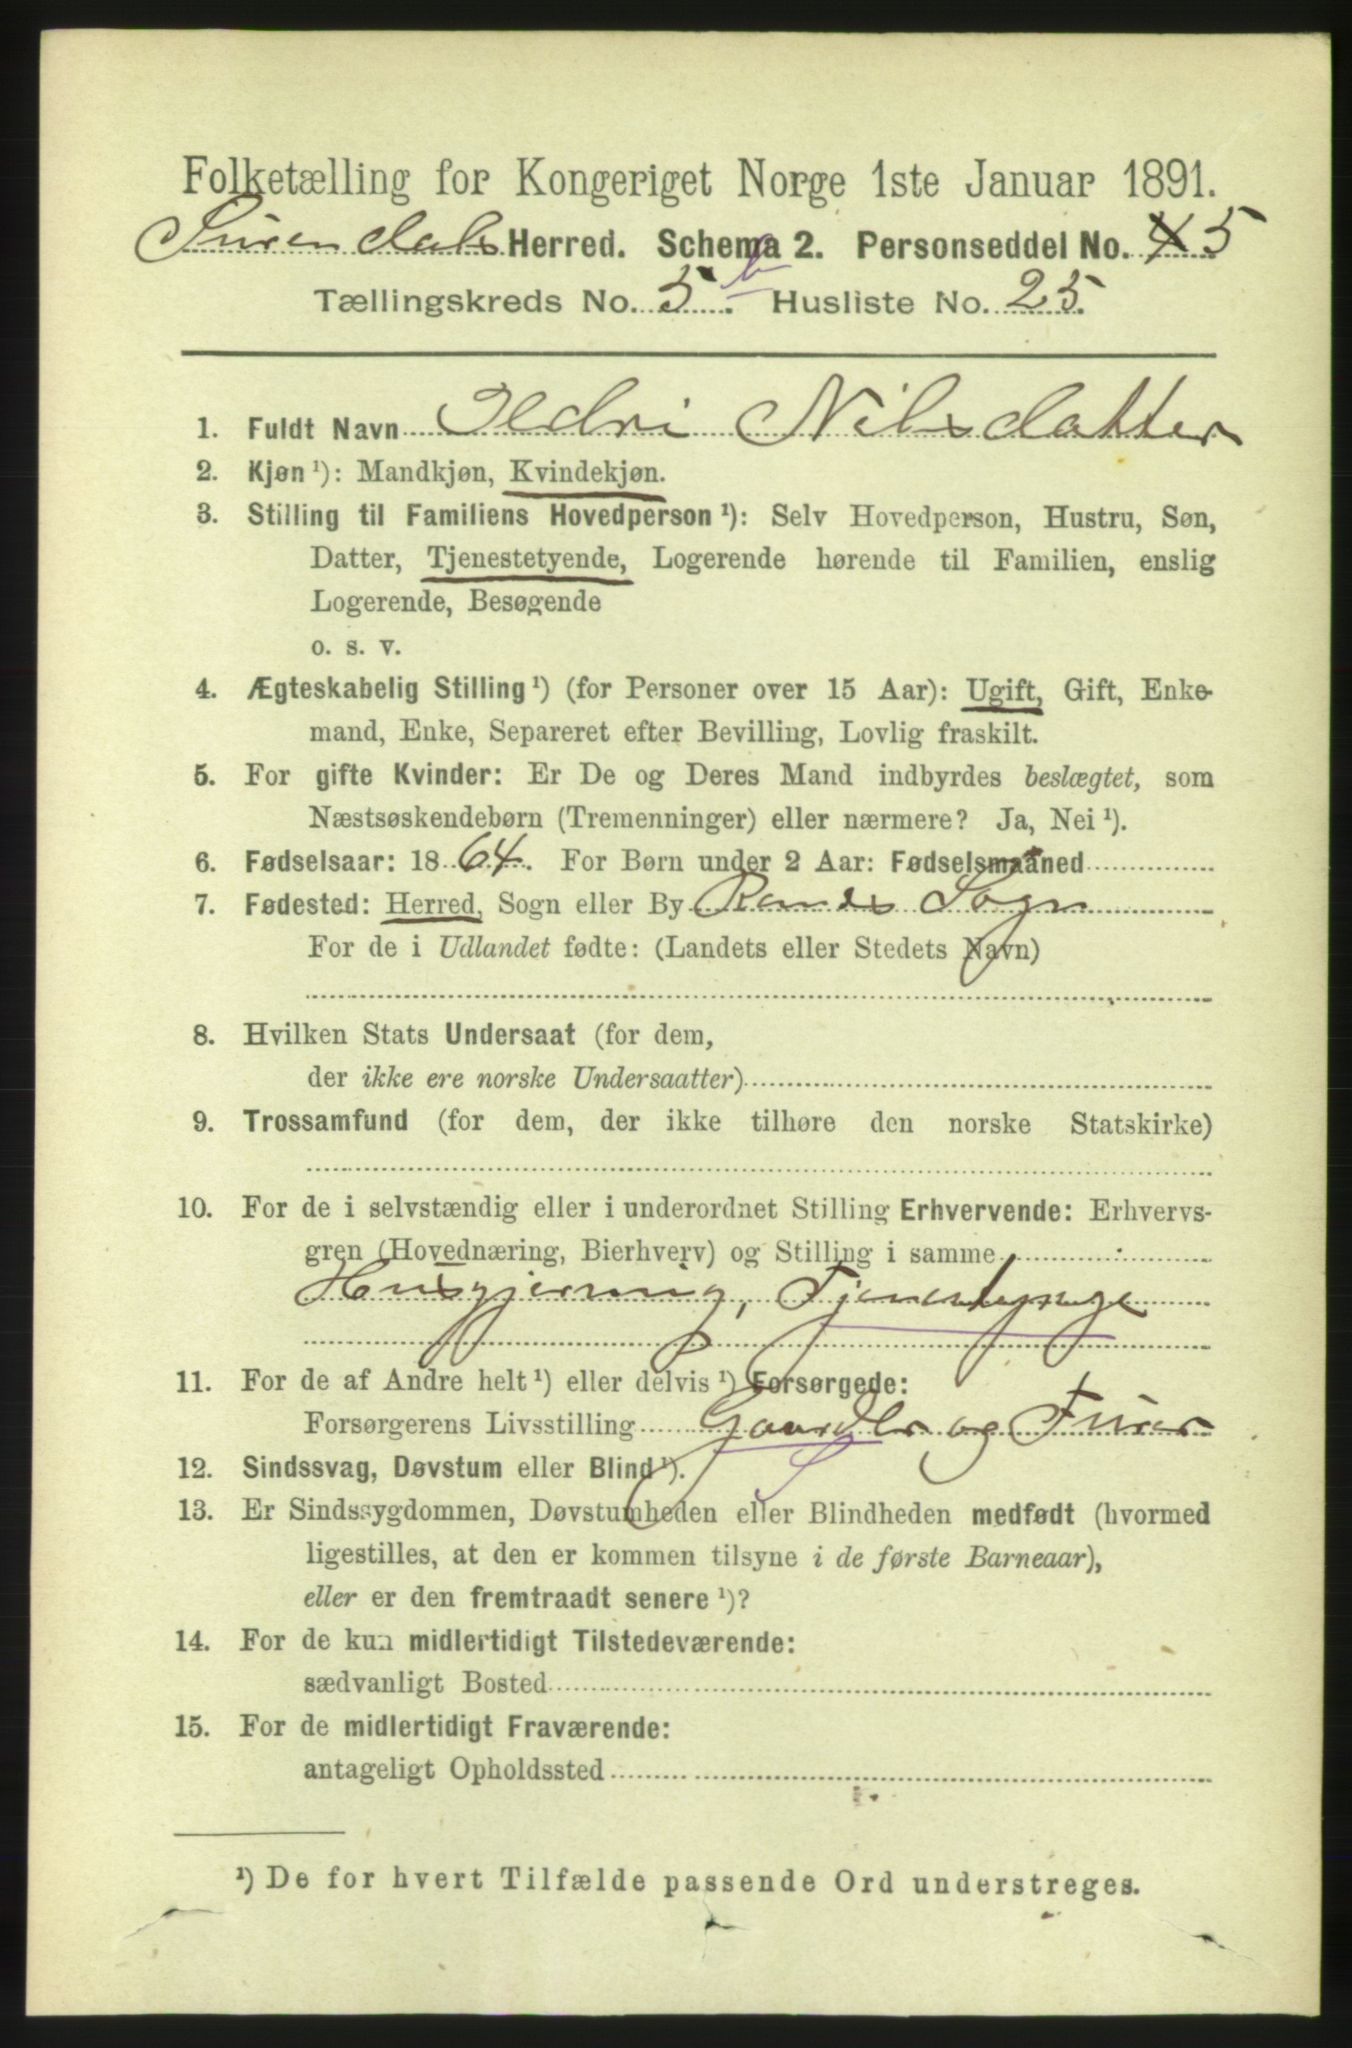 Folketælling for Kongeriget Norge 1ste Januar 1891.
Surendals Herred. Schema 2. Personseddel No. 4 5
Tællingskreds No. 5 b. Husliste No. 25.
1. Fuldt Navn Ildri Nilsdatter
2. Kjøn ¹): Mandkjøn, Kvindekjøn.
3. Stilling til Familiens Hovedperson ¹): Selv Hovedperson, Hustru, Søn,
Datter, Tjenestetyende, Logerende hørende til Familien, enslig
Logerende, Besøgende
o. s. v.
4. Ægteskabelig Stilling ¹) (for Personer over 15 Aar): Ugift, Gift, Enke-
mand, Enke, Separeret efter Bevilling, Lovlig fraskilt.
5. For gifte Kvinder: Er De og Deres Mand indbyrdes beslægtet, som
Næstsøskendebørn (Tremenninger) eller nærmere? Ja, Nei ¹).
6. Fødselsaar: 1864. For Børn under 2 Aar: Fødselsmaaned
7. Fødested: Herred, Sogn eller By Ranes Sogn
For de i Udlandet fødte: (Landets eller Stedets Navn)
8. Hvilken Stats Undersaat (for dem,
der ikke ere norske Undersaatter)
9. Trossamfund (for dem, der ikke tilhøre den norske Statskirke)
10. For de i selvstændig eller i underordnet Stilling Erhvervende: Erhvervs-
gren (Hovednæring, Bierhverv) og Stilling i samme
Husgjerning,
11. For de af Andre helt ¹) eller delvis ¹) Forsørgede:
Forsørgerens Livsstilling og
12. Sindssvag, Døvstum eller Blind ¹).
13. Er Sindssygdommen, Døvstumheden eller Blindheden medfødt (hvormed
ligestilles, at den er kommen tilsyne i de første Barneaar),
eller er den fremtraadt senere ¹)?
14. For de kun midlertidigt Tilstedeværende:
sædvanligt Bosted
15. For de midlertidigt Fraværende:
antageligt Opholdssted
¹) De for hvert Tilfælde passende Ord understreges.